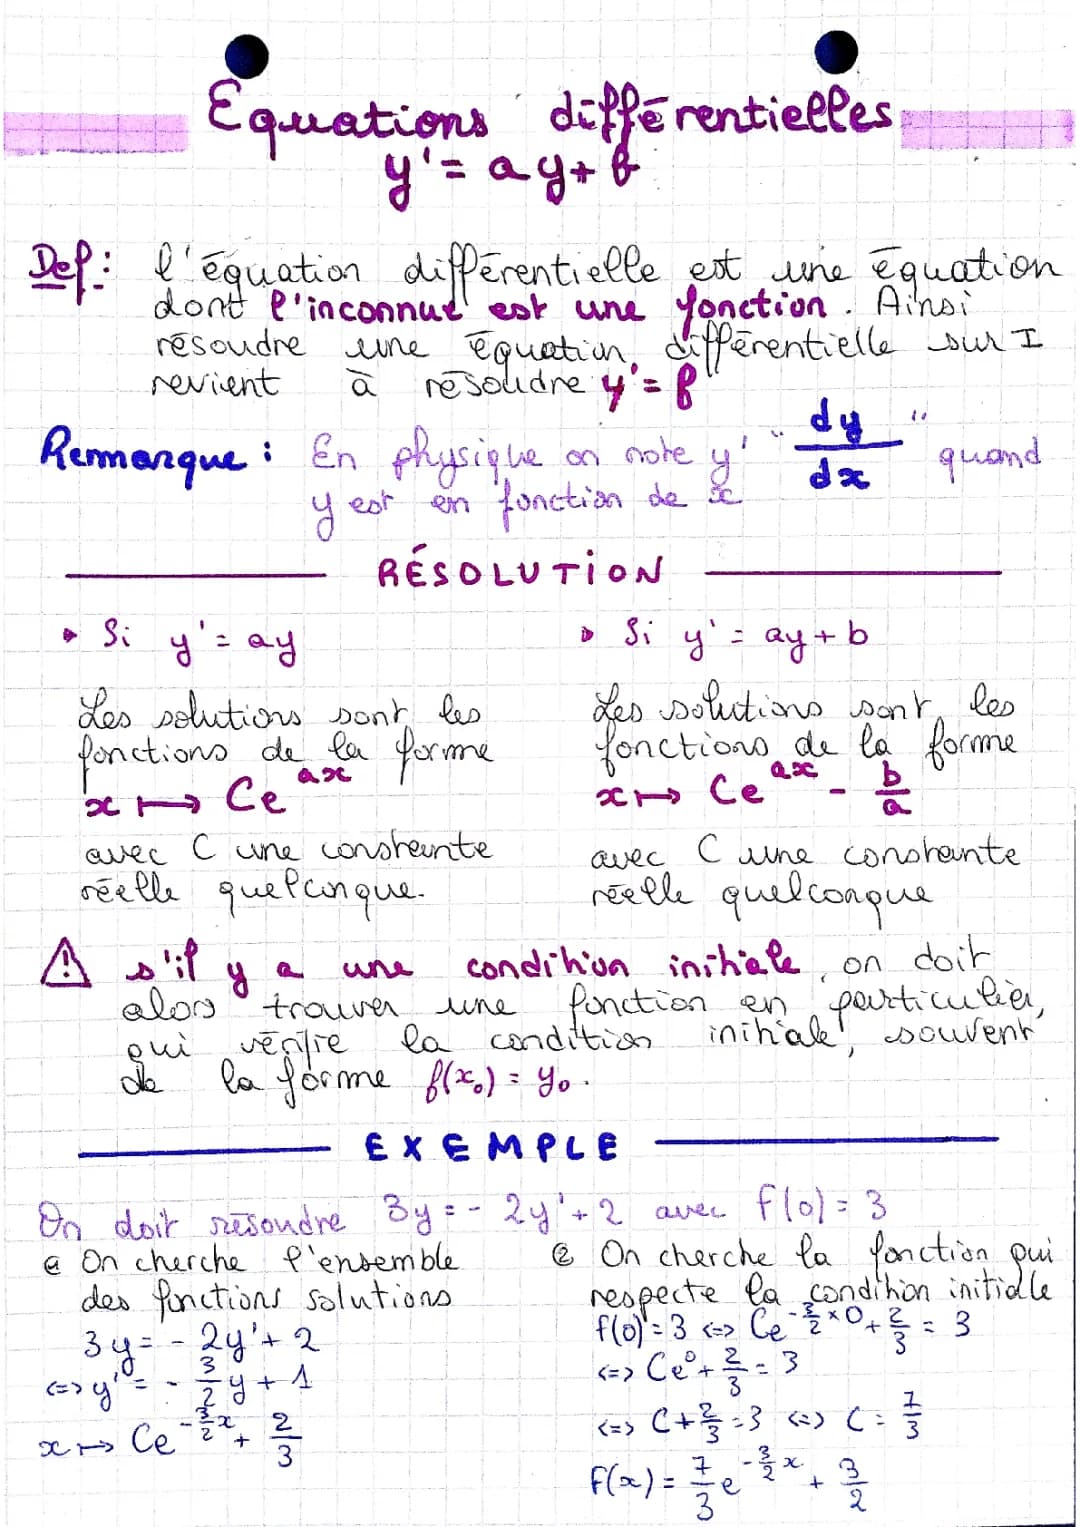 Equations différentielles
y' = ay + b
Def : l'équation différentielle est une équation
dont l'inconnue est une fonction. Ainsi
résoudre une équation différentielle sur I
revient à résoudre y' = f
Remarque : En physique on note y' " dy/dx " quand
y est en fonction de x
RÉSOLUTION
▸ Si y' = ay
Les solutions sont les
fonctions de la forme
x ↦ Ce^{ax}
avec C une constante
réelle quelconque.
▸ Si y' = ay + b
Les solutions sont les
fonctions de la forme
x ↦ Ce^{ax} - b/a
avec C une constante
réelle quelconque
⚠ s'il y a une condition initiale, on doit
alors trouver une fonction en particulier,
qui vérifie la condition initiale, souvent
de la forme f(x₀) = y₀.
EXEMPLE
On doit résoudre 3y = - 2y' + 2 avec f(0) = 3
@ On cherche l'ensemble
des fonctions solutions
3y = - 2y' + 2
<=> y' = - 3/2 y + 1
x ↦ Ce^{-3/2 x} + 2/3
② On cherche la fonction qui
respecte la condition initiale
f(0) = 3 <=> Ce^{-3/2 × 0} + 2/3 = 3
<=> Ce⁰ + 2/3 = 3
<=> C + 2/3 = 3 <=> C = 7/3
f(x) = 7/3 e^{-3/2 x} + 3/2